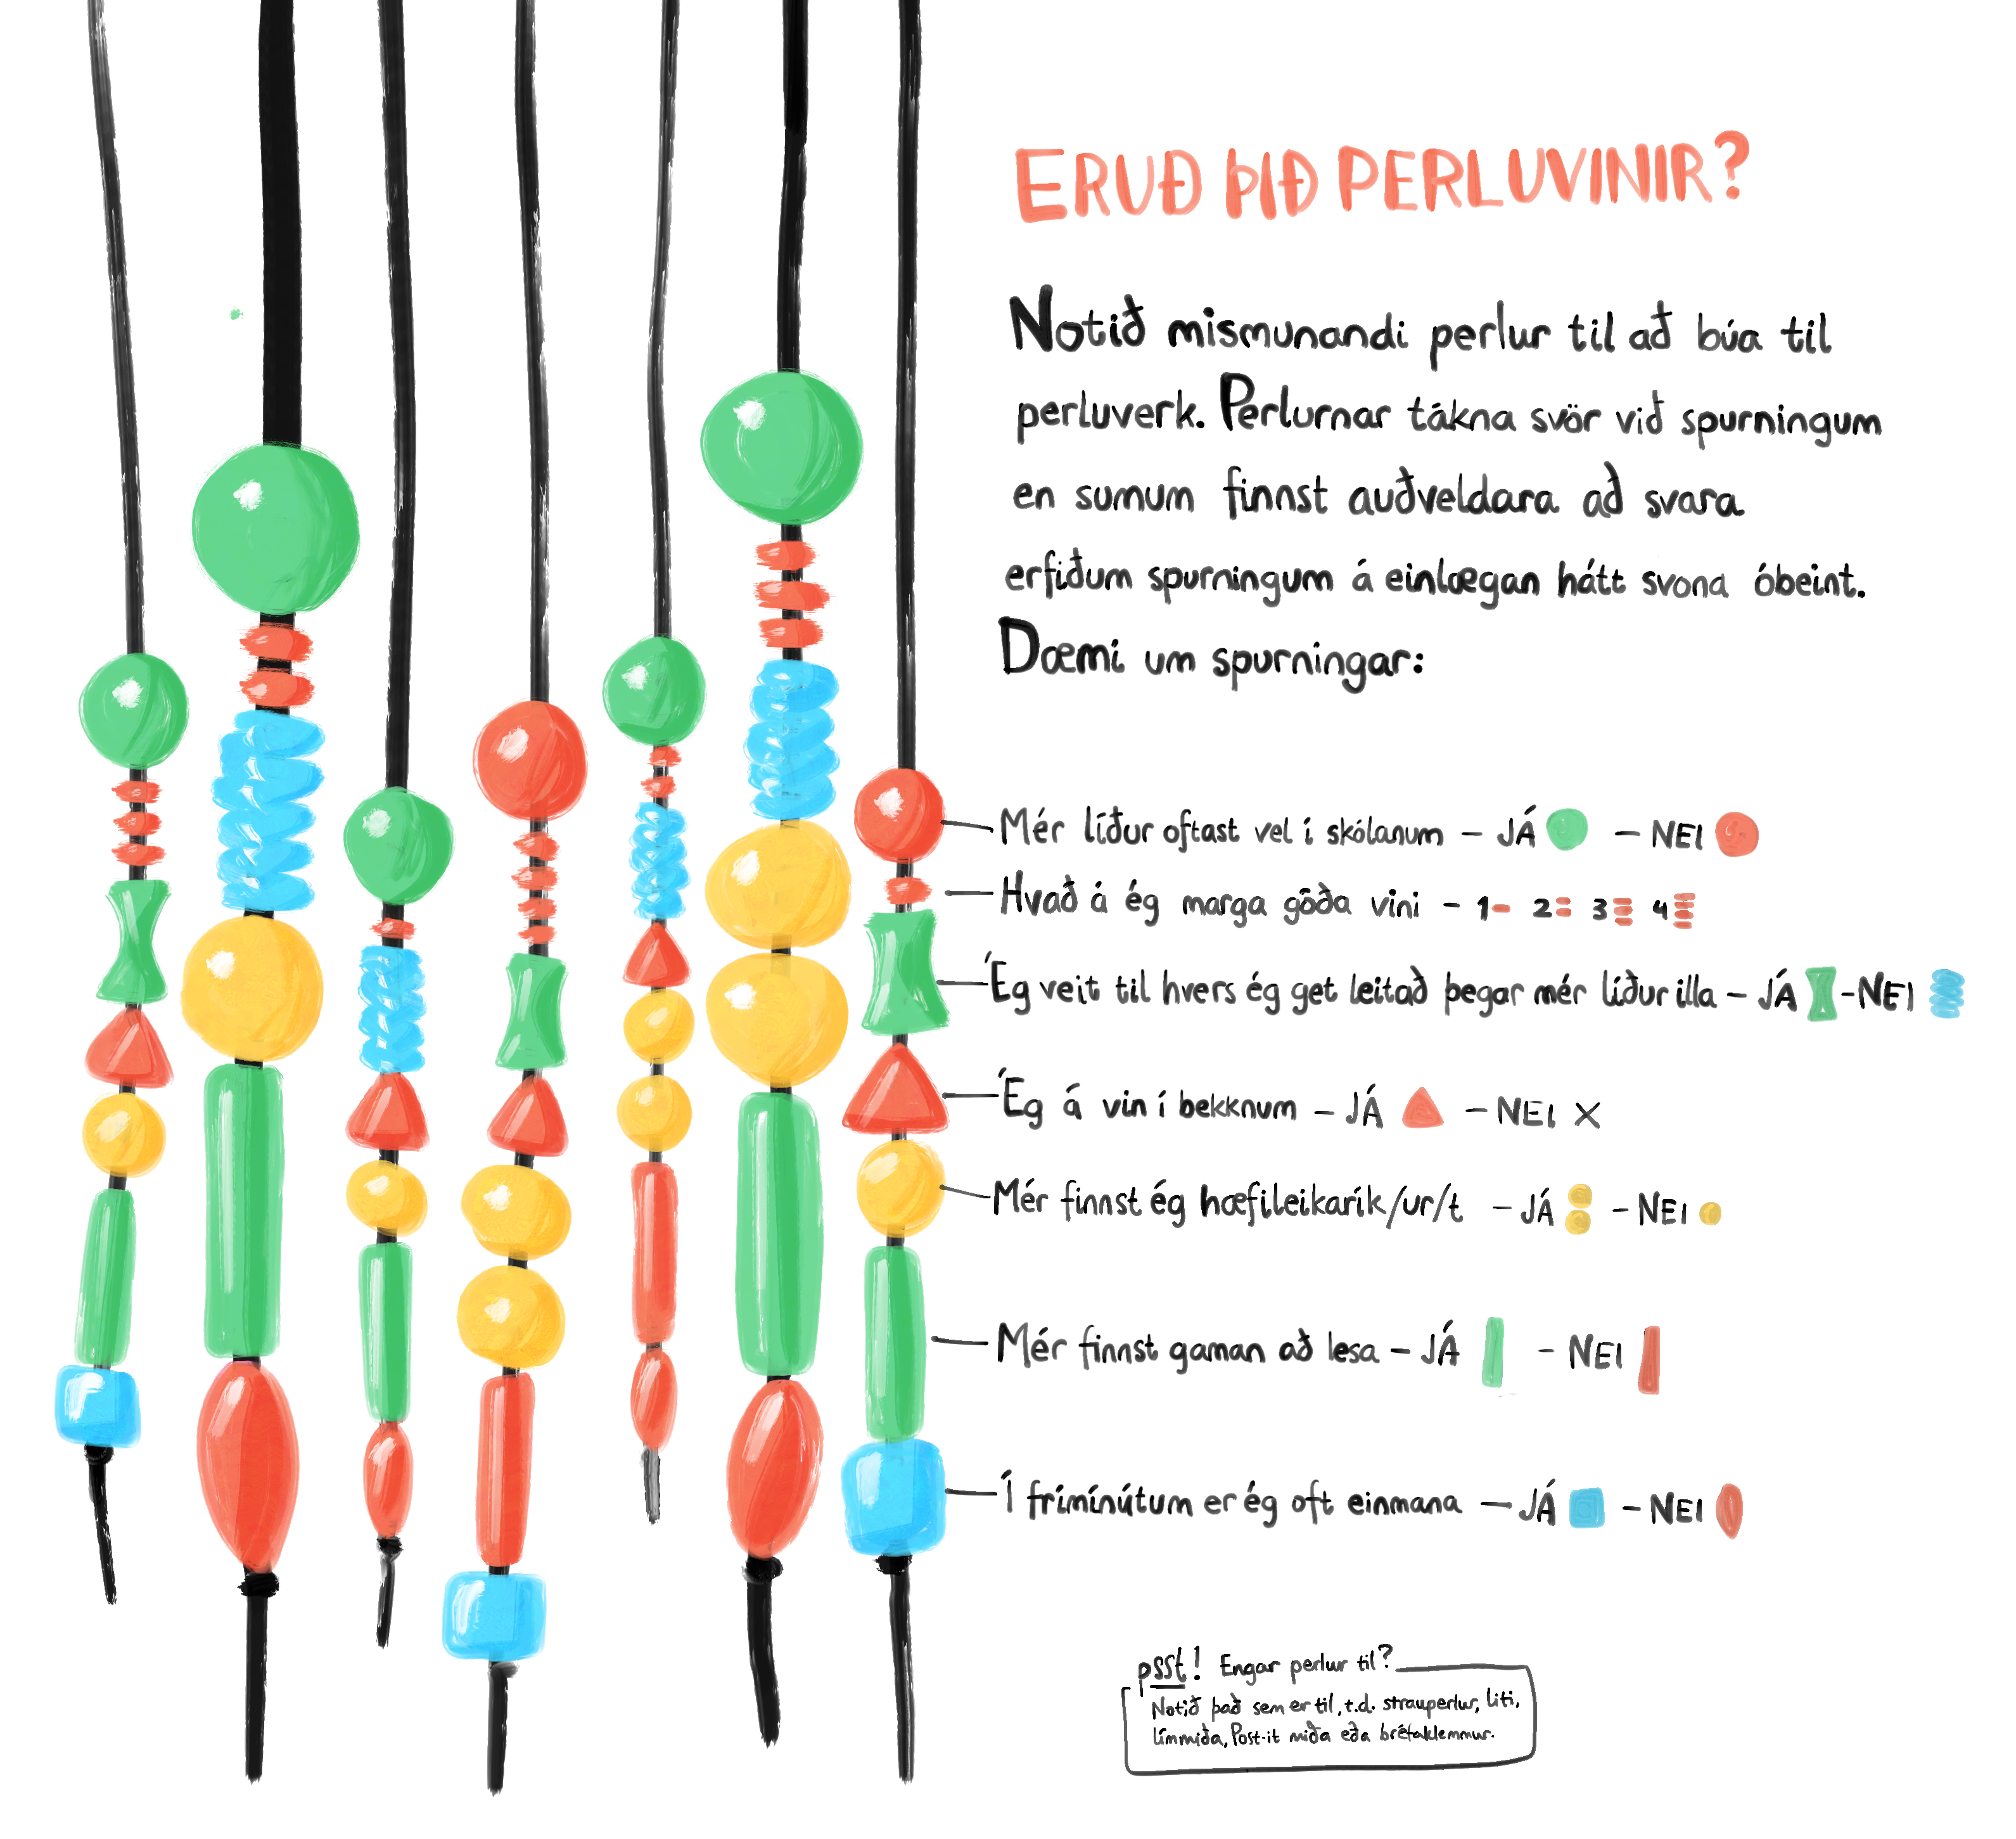 ERUÐ ÞIÐ PERLUVINIR?
Notið mismunandi perlur til að búa til
perluverk. Perlurnar tákna svör við spurningum
en sumum finnst auðveldara að svara
erfiðum spurningum á einlægan hátt svona óbeint.
Dæmi um spurningar:
Mér líður oftast vel í skólanum - JÁ - NEI
Hvað á ég marga góða vini - 1 2 3 4
Ég veit til hvers ég get leitað þegar mér líður illa - JÁ - NEI
Ég á vin í bekknum - JÁ - NEI X
Mér finnst ég hæfileikarík/ur/t - JÁ - NEI
Mér finnst gaman að lesa - JÁ - NEI
Í frímínútum er ég oft einmana - JÁ - NEI
psst! Engar perlur til?
Notið það sem er til, t.d. strauperlur, liti,
límmiða, Post-it miða eða bréfaklemmur.